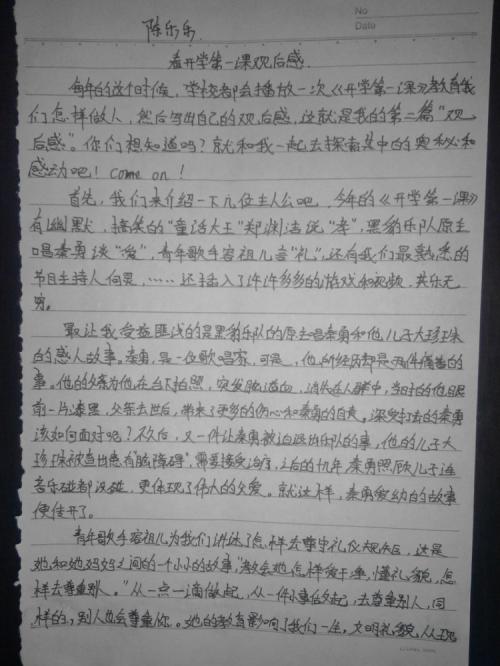 No
Date
陈乐乐
看开学第一课观后感.
每年的这个时候，学校都会播放一次《开学第一课》教育我
们怎样做人，然后写出自己的观后感，这就是我的第二篇“观
后感”。你们想知道吗？就和我一起去探索其中的奥秘和
感动吧！come on！
首先，我们来介绍一下几位主人公吧，今年的《开学第一课》
有幽默，搞笑的“童话大王”郑渊洁说“孝”，黑豹乐队原主
唱秦勇谈“爱”，青年歌手容祖儿言“礼”，还有我们最熟悉的
节目主持人何炅，……还插入了许许多多的游戏和视频，其乐无
穷。
最让我受益匪浅的是黑豹乐队的原主唱秦勇和他儿子大珍珠
的感人故事。秦勇，是一位歌唱家，可是，他所经历却是两件痛苦的
事。他的父亲为他在台下拍照，突发脑溢血，消失在人群中，当时的他眼
前一片漆黑，父亲去世后，带来了更多的伤心和秦勇的自责。深受打击的秦勇
该如何面对呢？不久后，又一件让秦勇被迫退出乐队的事，他的儿子大
珍珠被查出患有“脑障碍”，需要接受治疗，之后的九年秦勇照顾儿子连
音乐碰都没碰，更体现了伟大的父爱。就这样，秦勇爱幼的故事
便传开了。
青年歌手容祖儿为我们讲述了怎样去尊守礼仪规矩，这是
她和她妈妈之间的一个小小的故事，教会她怎样爱干净，懂礼貌，怎
样去尊重别人。“从一点一滴做起，从一件小事做起，去尊重别人，同
样的，别人也会尊重你。她的教育影响了我们一生，文明礼貌，从现